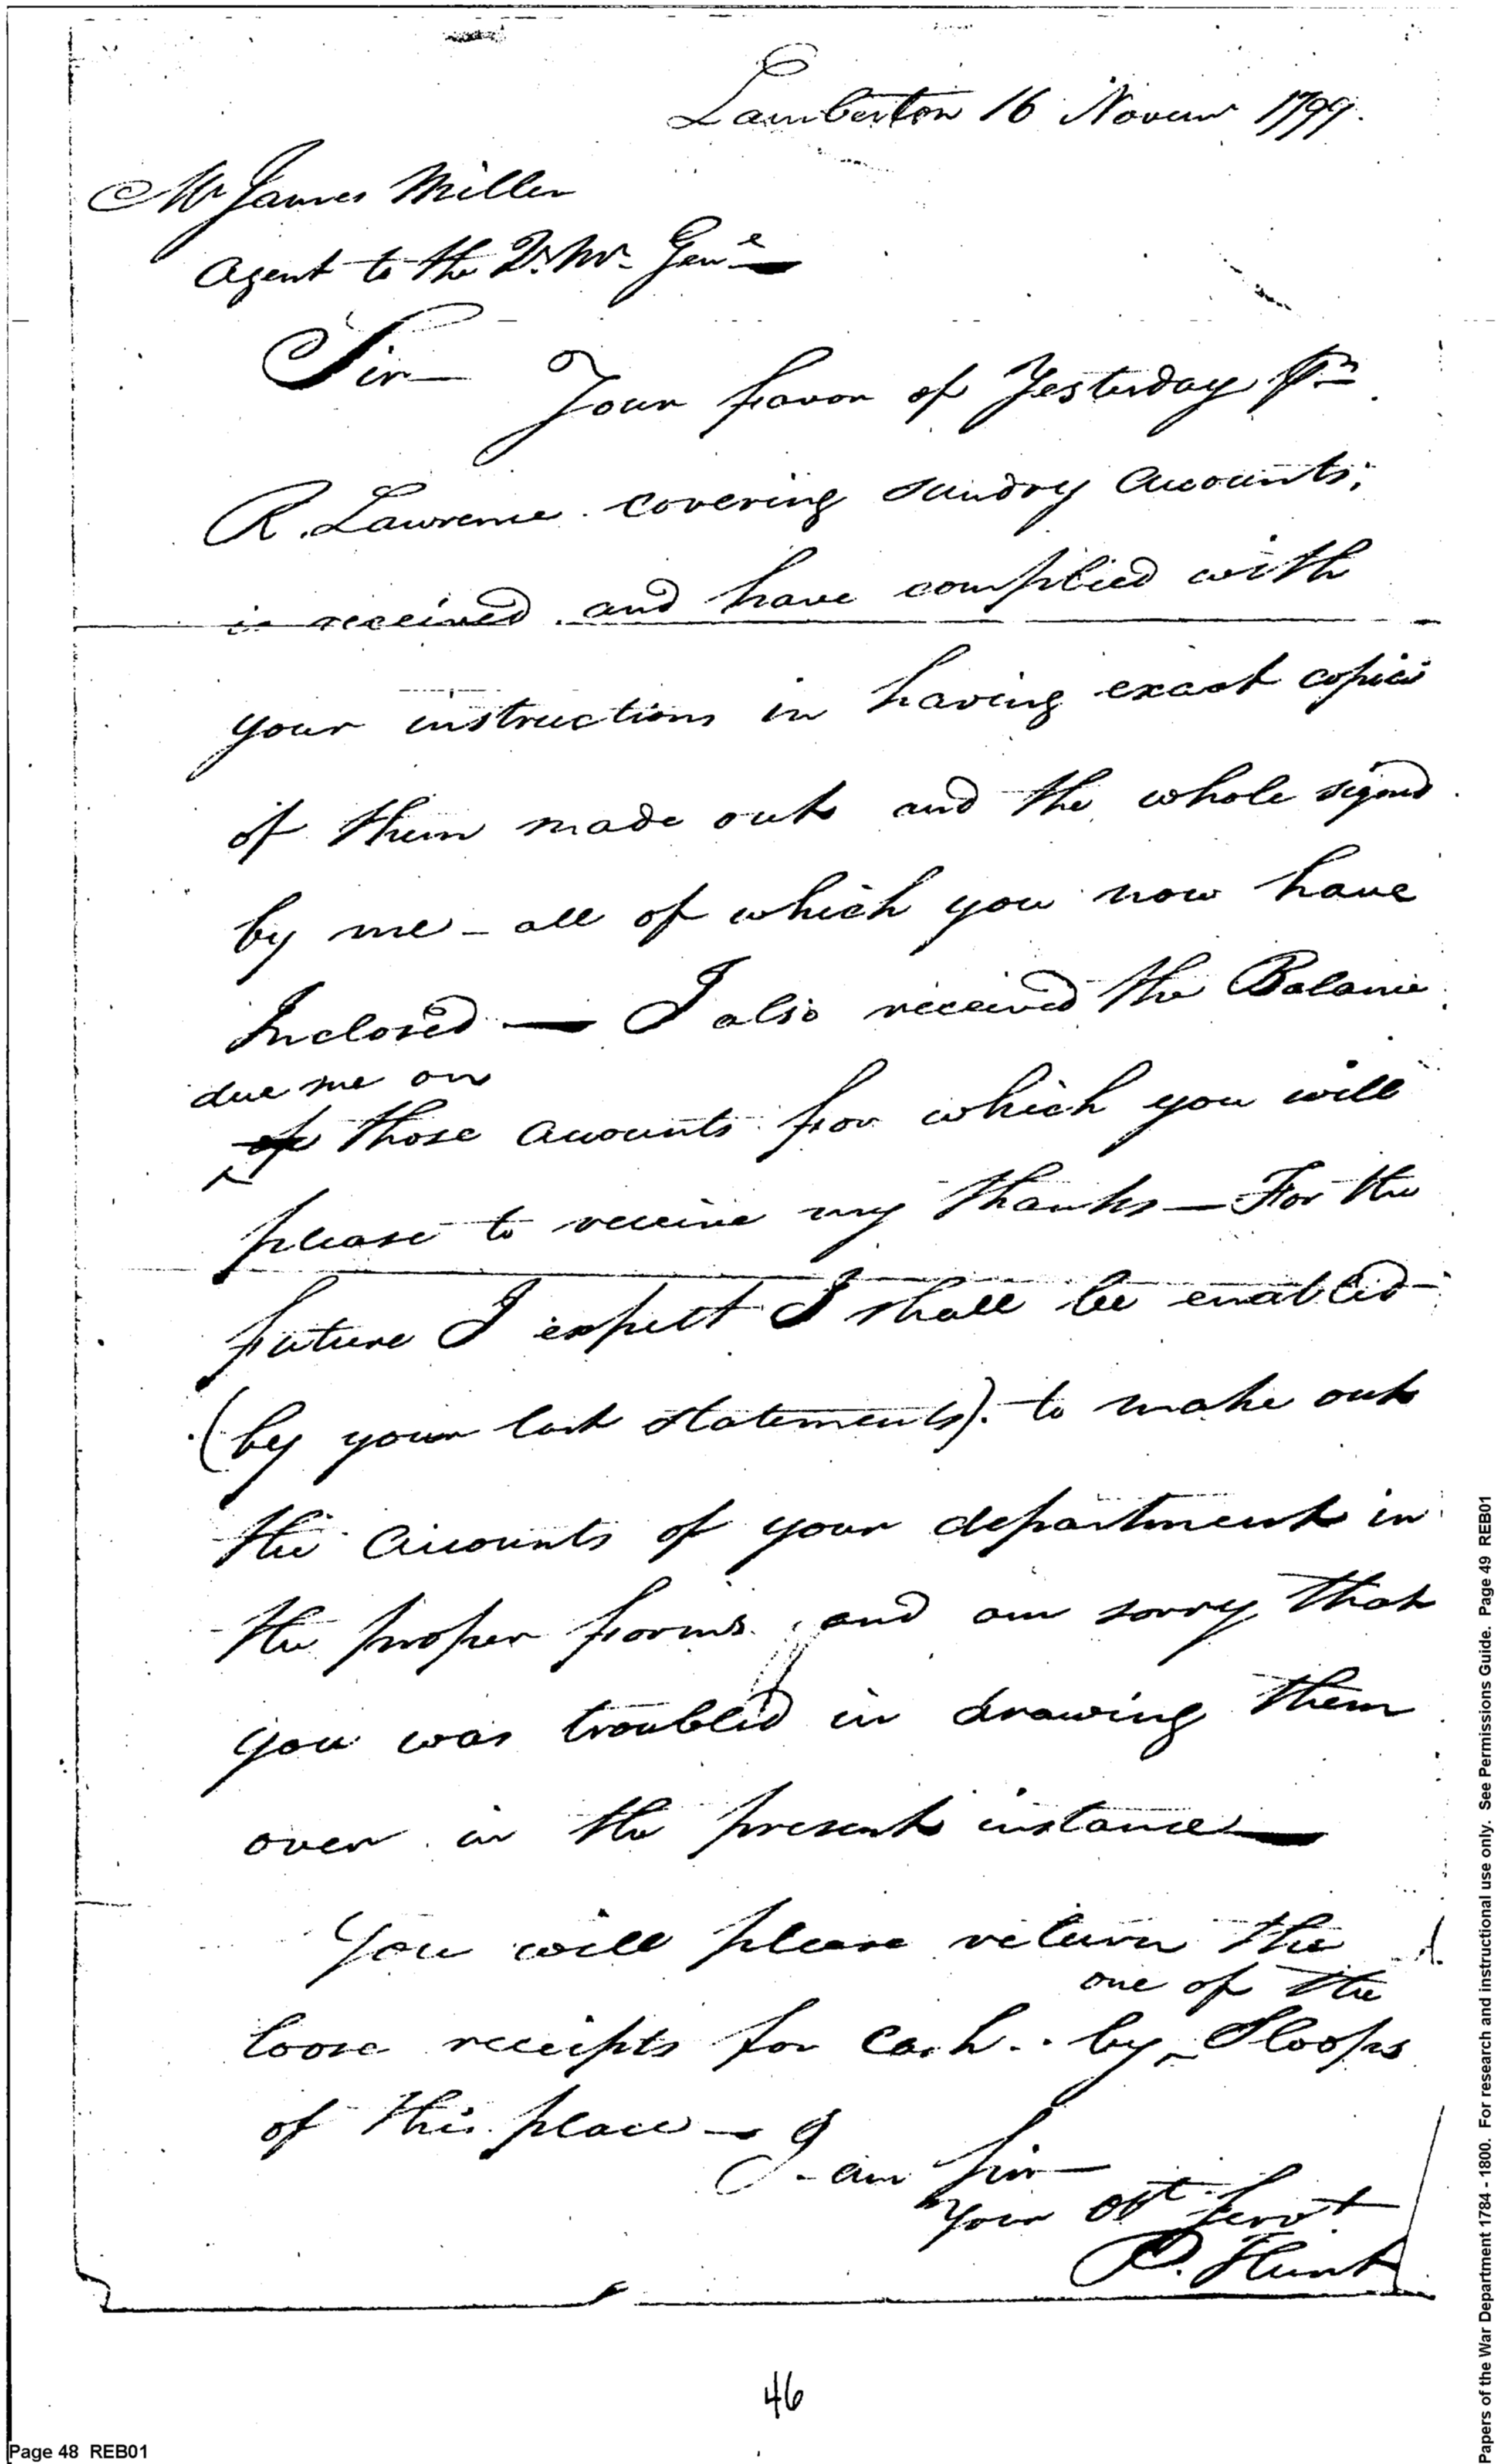 Lamberton 16 Novem 1799.
Mr James Miller
Agent to the Qr Mr Genl
Sir— Your favor of Yesterday
R. Lawrence covering sundry accounts;
is received and have complied with
your instructions in having exact copies
of them made out and the whole signd
by me - all of which you now have
Inclosed — I also received the Balance
due me on
of those accounts for which you will
please to receive my thanks — For the
future I expect I shall be enabled
(by your last statements) to make out
the accounts of your department in
the proper forms, and am sorry that
you was troubled in drawing them
over in the present instance —
You will please return the
one of the
loose receipts for Cash.. by Sloops
of this place —
I am Sir —
Your obt Servt
P. Hunt
46
Page 48 REB01
Papers of the War Department 1784 - 1800. For research and instructional use only. See Permissions Guide. Page 49 REB01